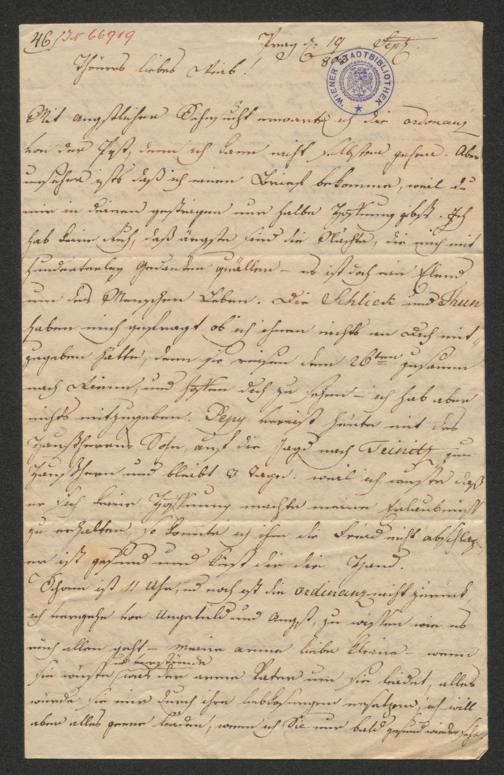 46/ IN 66919
Prag d: 19 Sept
803
WIENER STADTBIBLIOTHEK
Theures liebes Weib!
Mit ängstlicher Sehnsucht erwarte ich die ordonanz
von der Post, denn ich kann nicht selbsten gehen. Aber
ists daß ich einen Brief bekomme, weil du
mir in deinen gestrigen nur halbe Hoffnung gibst. Ich
hab keine Ruh, das ärgste sind die Nächte, die mich mit
hunderterley Gedanken quällen – es ist doch ein Elend
um des Menschen Leben. Die Schlick und Thun
haben mich gefragt ob ich ihnen nichts an dich mit-
zugeben hätte, denn sie reisen den 26ten zusamm
nach Wienn, und hoffen dich zu sehen – ich hab aber
nichts mitzugeben. Pepy reist heute mit des
Haußherrns Sohn, auf die Jagd nach Teinitz zum
Haußherrn und bleibt 3 Tage. weil ich wußte daß
er sich keine Hoffnung machte meine Erlaubniß
zu erhalten so konnte ich ihm die Freud nicht abschlag
er ist gesund und küst dir die Hand.
Schon ist 11 Uhr, und noch ist die ordinanz nicht zurück
ich vergehe vor Ungeduld und Angst, zu wissen wie es
euch allen geht – meine arme liebe – wenn
sie wüste was der arme Vater um sie leidet, alles
würde sie mir durch ihre liebkosungen ersetzen, ich will
aber alles gerne leiden, wenn ich Sie nur bald gesund wieder sehe